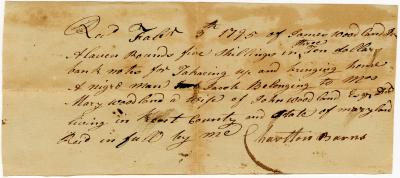 Recd Febr 5th 1795 of James Woodland
Alaven Pounds five Shillings in three Ten dollar
bank notes for Takeing up and bringing home
A nigro man Jacob Belonging to Mrs
Mary woodland a wife of John Woodland Esqr Dd
living in Kent County and State of maryland
Recd in full by me Charltin Barns